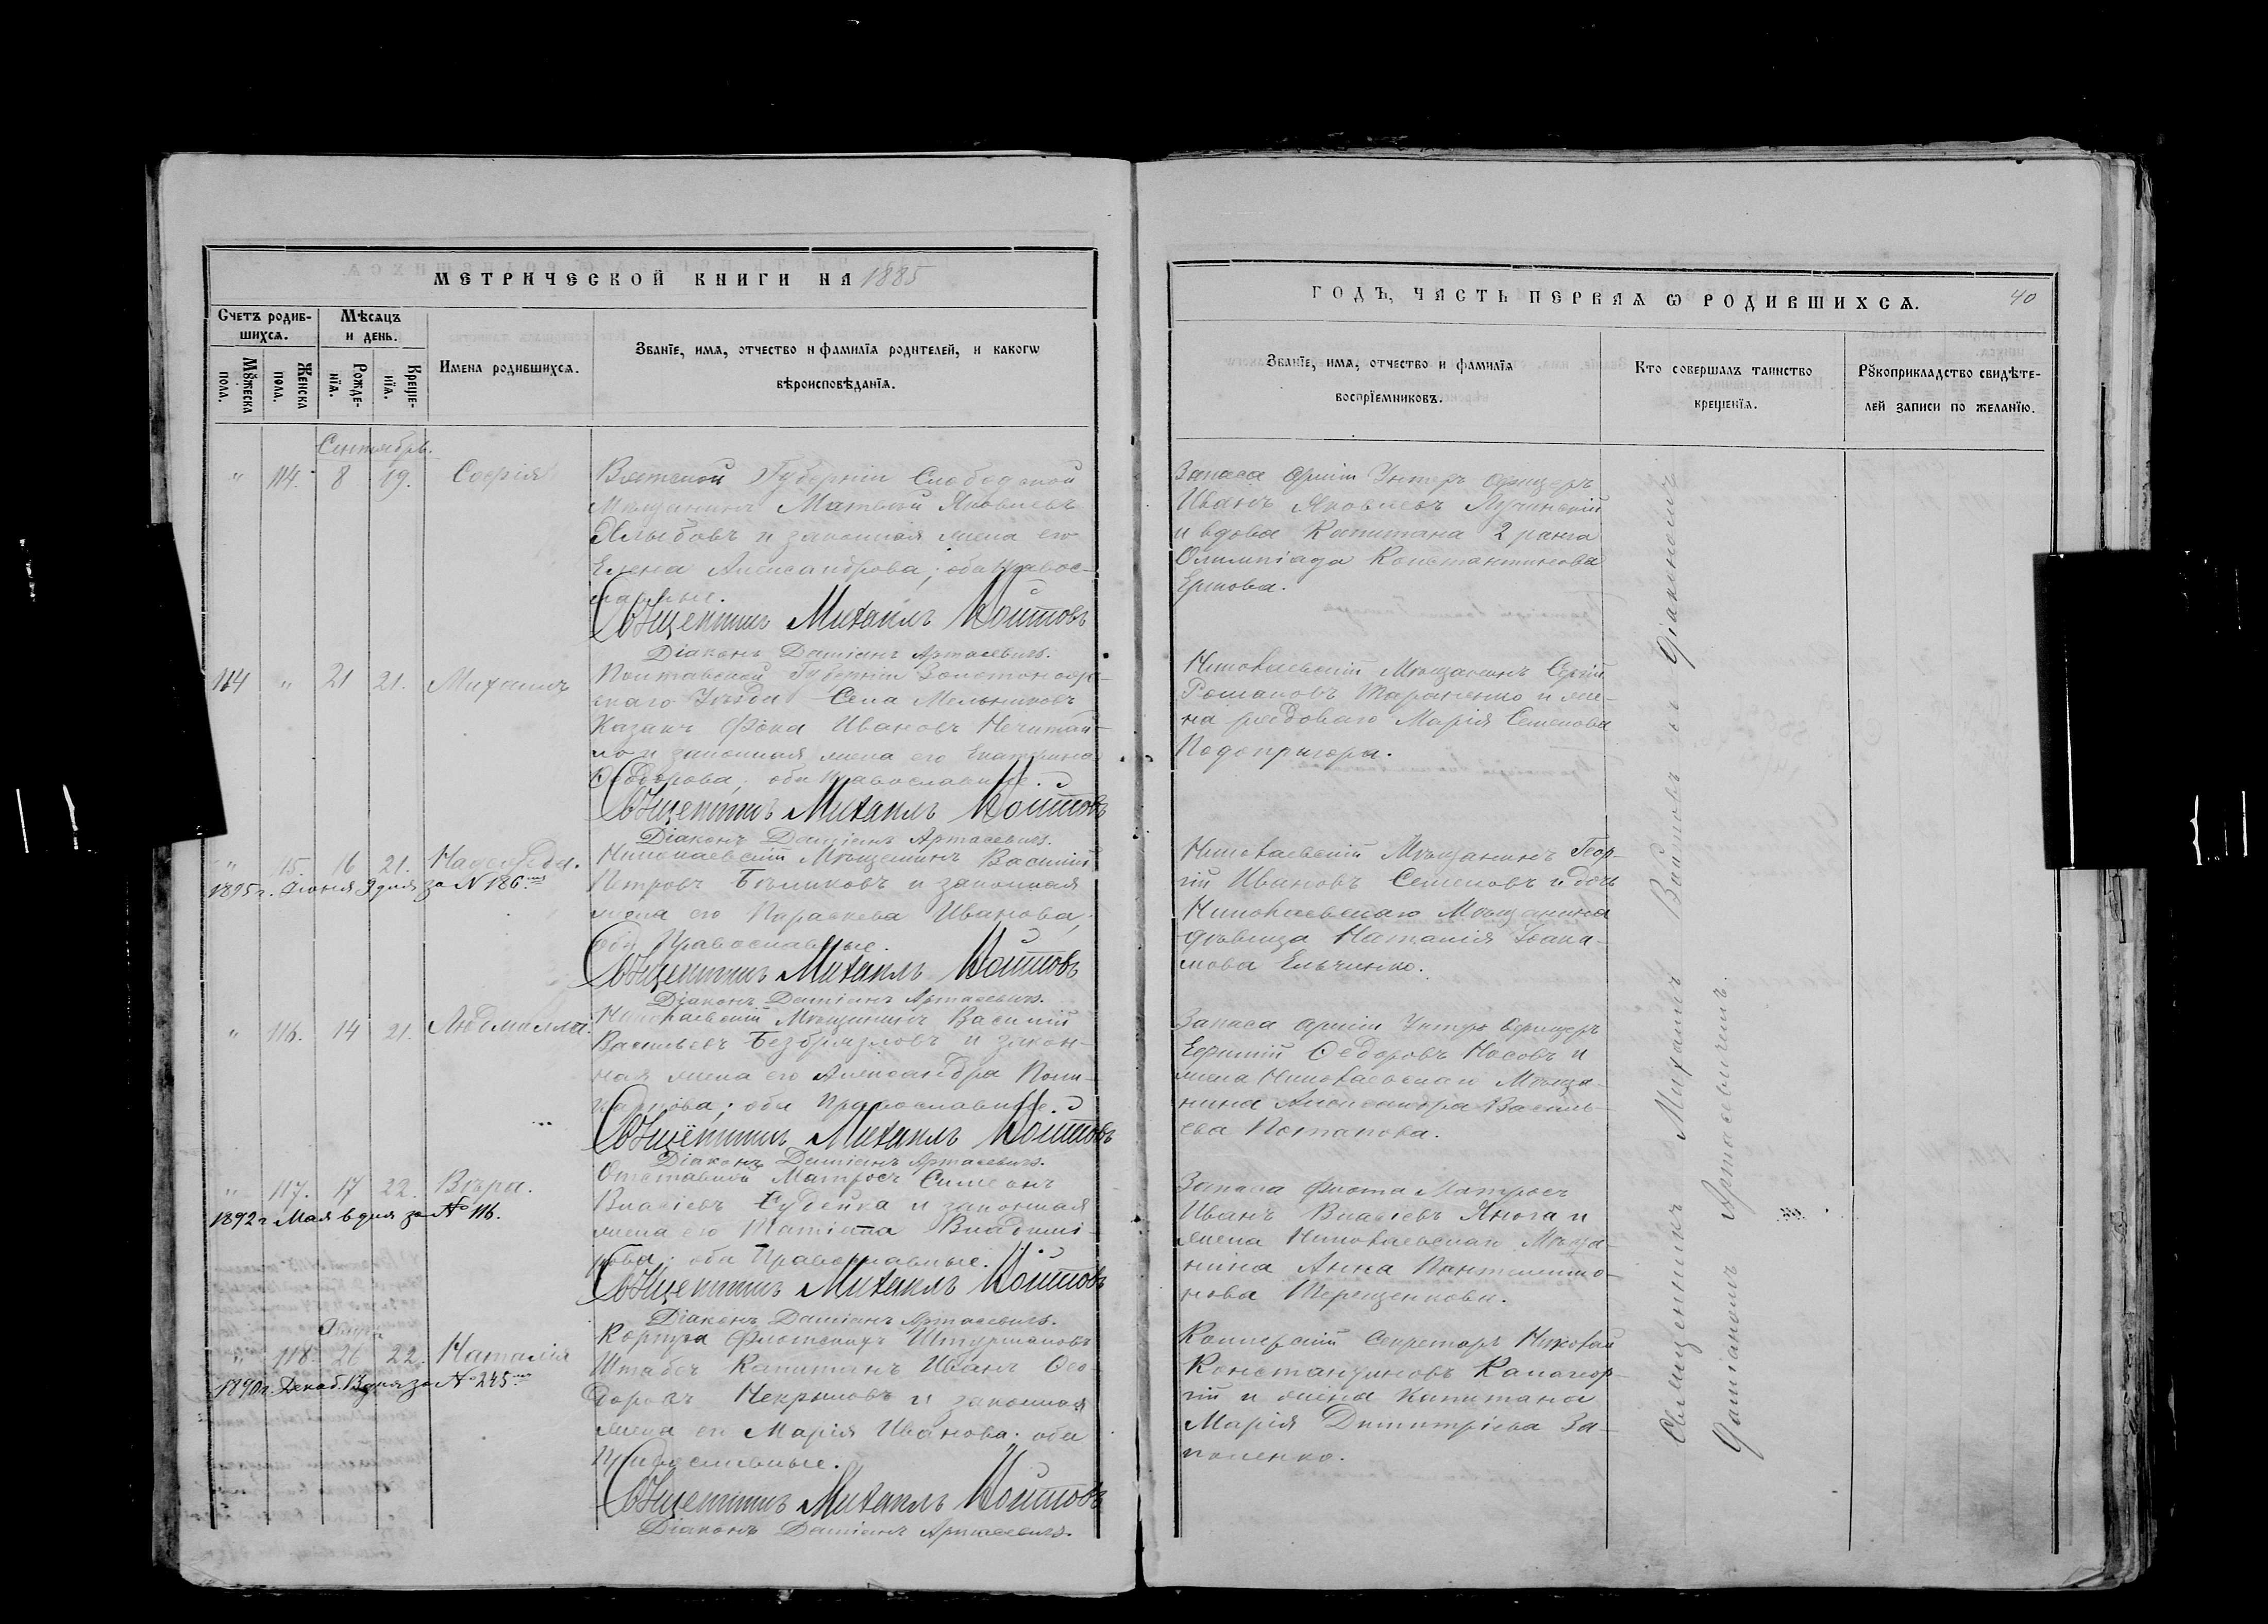 МЕТРИЧЕСКОЙ КНИГИ НА 1885
Счетъ родив-
шихся.
Мѣсяцъ
и день.
Мужеска
пола.
Женска
пола.
Рожде-
нія.
Креще-
нія.
Имена родившихся.
Званіе, имя, отчество и фамилія родителей, и какогѡ
вѣроисповѣданія.
Сентябрь.
" 114. 8 19. Софія
Вятской Губерніи Слободской
Мѣщанинъ Матвѣй Яковлевъ
и законная жена его
Елена Александрова; оба Правос-
лавные.
Священникъ Михаилъ Войтовъ
Діаконъ Даміанъ Артасевичъ.
114 " 21 21. Михаилъ
Полтавской Губерніи Золотоношс-
каго Уѣзда Села Мельниковъ
Казакъ Фока Ивановъ Нечитай-
ло и законная жена его Екатерина
Ѳеодорова; оба Православные.
Священникъ Михаилъ Войтовъ
Діаконъ Даміанъ Артасевичъ.
" 115. 16 21. Надежда.
1895 г. Іюня 3 дня за № 186
Николаевскій Мѣщанинъ Василій
Петровъ Бѣликовъ и законная
жена его Параскева Иванова,
оба Православные.
Священникъ Михаилъ Войтовъ
Діаконъ Даміанъ Артасевичъ.
" 116. 14 21. Людмилла.
Николаевскій Мѣщанинъ Василій
Васильевъ Безбрязговъ и закон-
ная жена его Александра
оба Православные.
Священникъ Михаилъ Войтовъ
Діаконъ Даміанъ Артасевичъ.
" 117. 17 22. Вѣра.
1892 г Мая 6 дня за № 116.
Отставной Матросъ Симеонъ
Власіевъ Судейка и законная
жена его Татіана Владимі-
рова; оба Православные.
Священникъ Михаилъ Войтовъ
Діаконъ Даміанъ Артасевичъ.
" 118. 26 22. Наталія
1890 г. Декаб. 13 дня за № 245
Корпуса Флотскихъ Штурмановъ
Штабсъ Капитанъ Иванъ Ѳео-
доровъ Некрыловъ и законная
жена его Марія Иванова. оба
Православные.
Священникъ Михаилъ Войтовъ
Діаконъ Даміанъ Артасевичъ.
ГОДЪ, ЧАСТЬ ПЕРВАЯ Ѡ РОДИВШИХСЯ. 40
Званіе, имя, отчество и фамилія
воспріемниковъ.
Кто совершалъ таинство
крещенія.
Рукоприкладство свидѣте-
лей записи по желанію.
Запаса арміи Унтеръ Офицеръ
Иванъ Яковлевъ Лучинскій
и вдова Капитана 2 ранга
Олимпіада Константинова
Ершова.
Николаевскій Мѣщанинъ Сергій
Романовъ Тараненко и же-
на рядоваго Марія Семенова
Подопригора.
Николаевскій Мѣщанинъ Геор-
гій Ивановъ Семеновъ и дочь
Николаевскаго Мѣщанина
дѣвица Наталія Іоаки-
мова Ельченко.
Запаса арміи Унтеръ Офицеръ
Ефимій Ѳедоровъ Носовъ и
жена Николаевскаго Мѣща-
нина Александра Василь-
ева Потапова.
Запаса флота Матросъ
Иванъ Власіевъ Янога и
жена Николаевскаго Мѣща-
нина Анна Пантелеимо-
нова Терещенкова.
Коллежскій Секретарь Николай
Константиновъ Калагеор-
гій и жена Капитана
Марія Димитріева За-
поленко.
Священникъ Михаилъ Войтовъ съ Діакономъ
Даміаномъ Артасевичемъ.